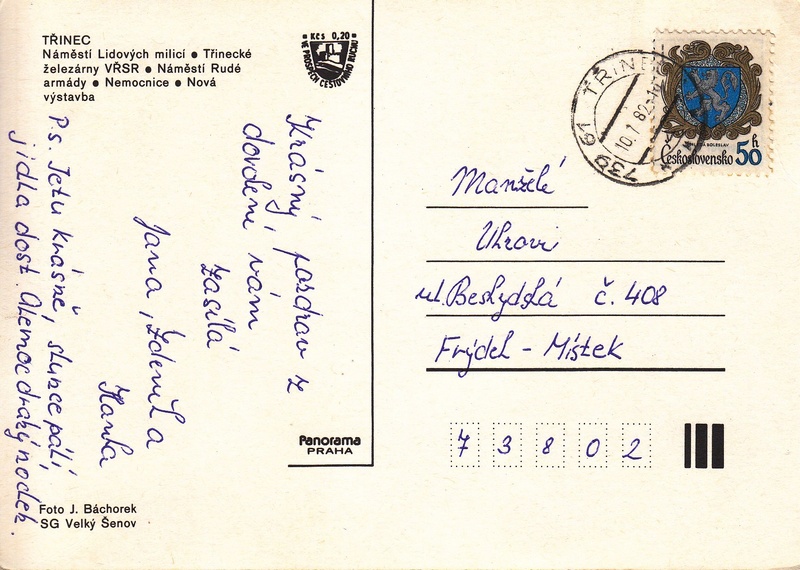 TŘINEC
Náměstí Lidových milicí ● Třinecké
železárny VŘSR ● Náměstí Rudé
armády ● Nemocnice ● Nová
výstavba
Kčs 0,20
VE PROSPĚCH CESTOVNÍHO RUCHU
Krásný pozdrav z
dovolené vám
zasílá
Jana, Zdeněk a
Hanka
P.s. Je tu krásně, slunce pálí,
jídla dost.
Foto J. Báchorek
SG Velký Šenov
Panorama
PRAHA
739 61 TŘINEC
10.1.82
MLADÁ BOLESLAV
Československo 50 h
Manželé
Uhrovi
ul. Beskydská č. 408
Frýdek - Místek
7 3 8 0 2